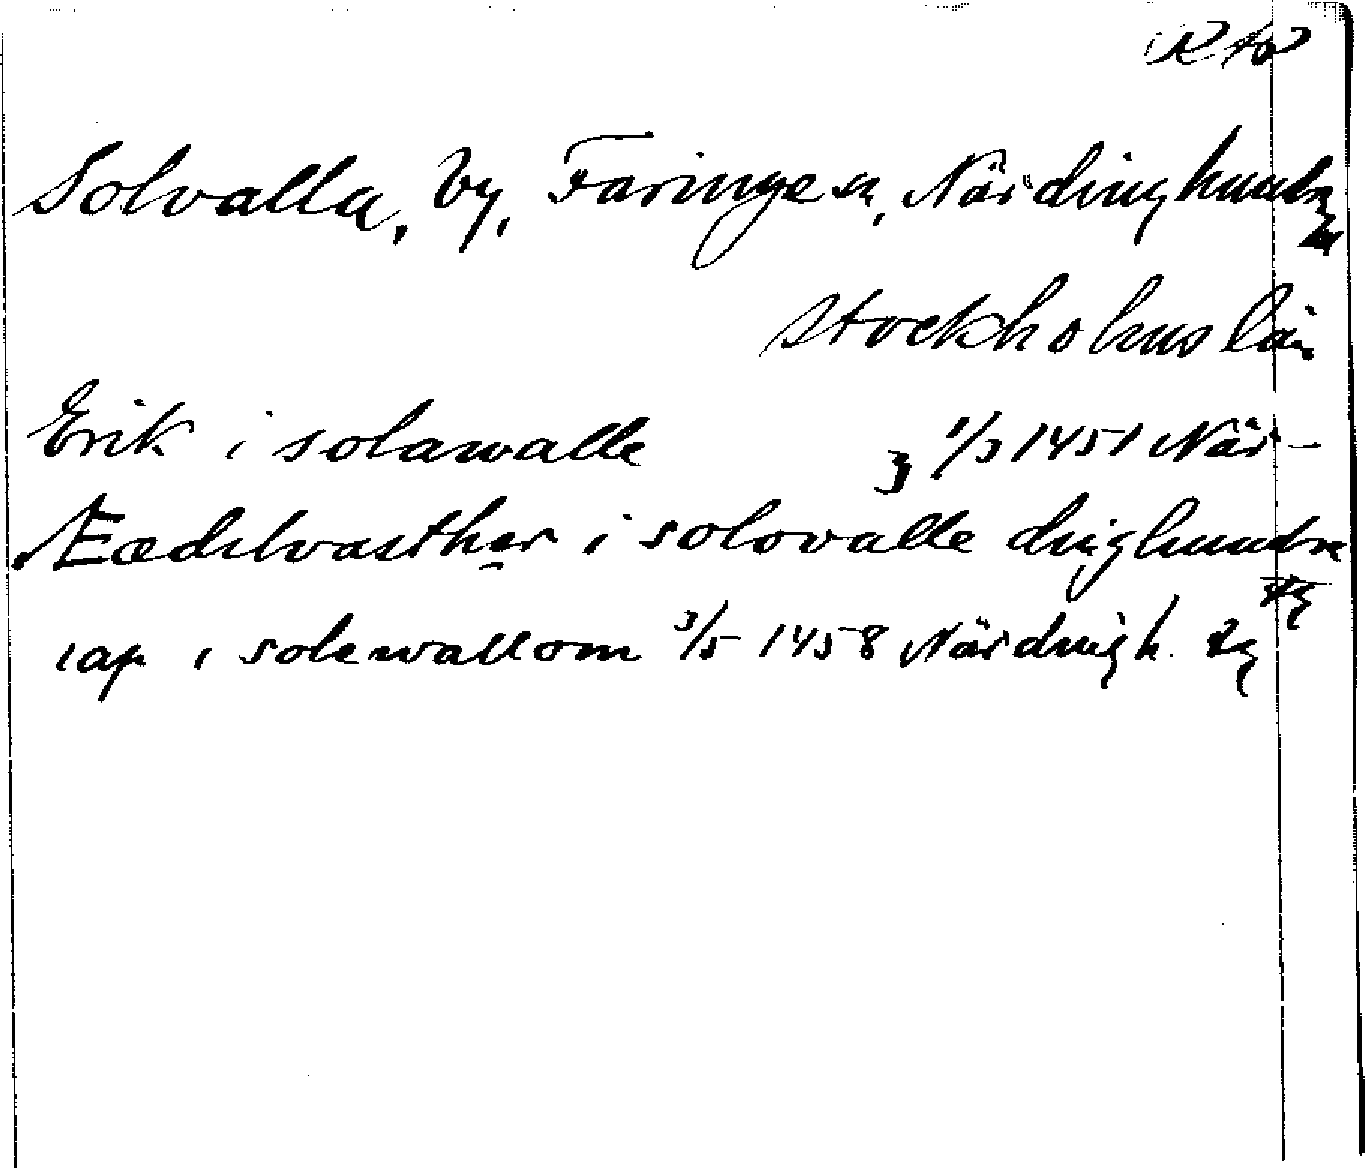 Solvalla, by, Faringe sn, Närdinghundra
Stockholms län
Erik i solawalle } 1/3 1451 När-
Ædelvasther i solovalle dinghundra
iap i solewallom 3/5 1458 Närdingh.